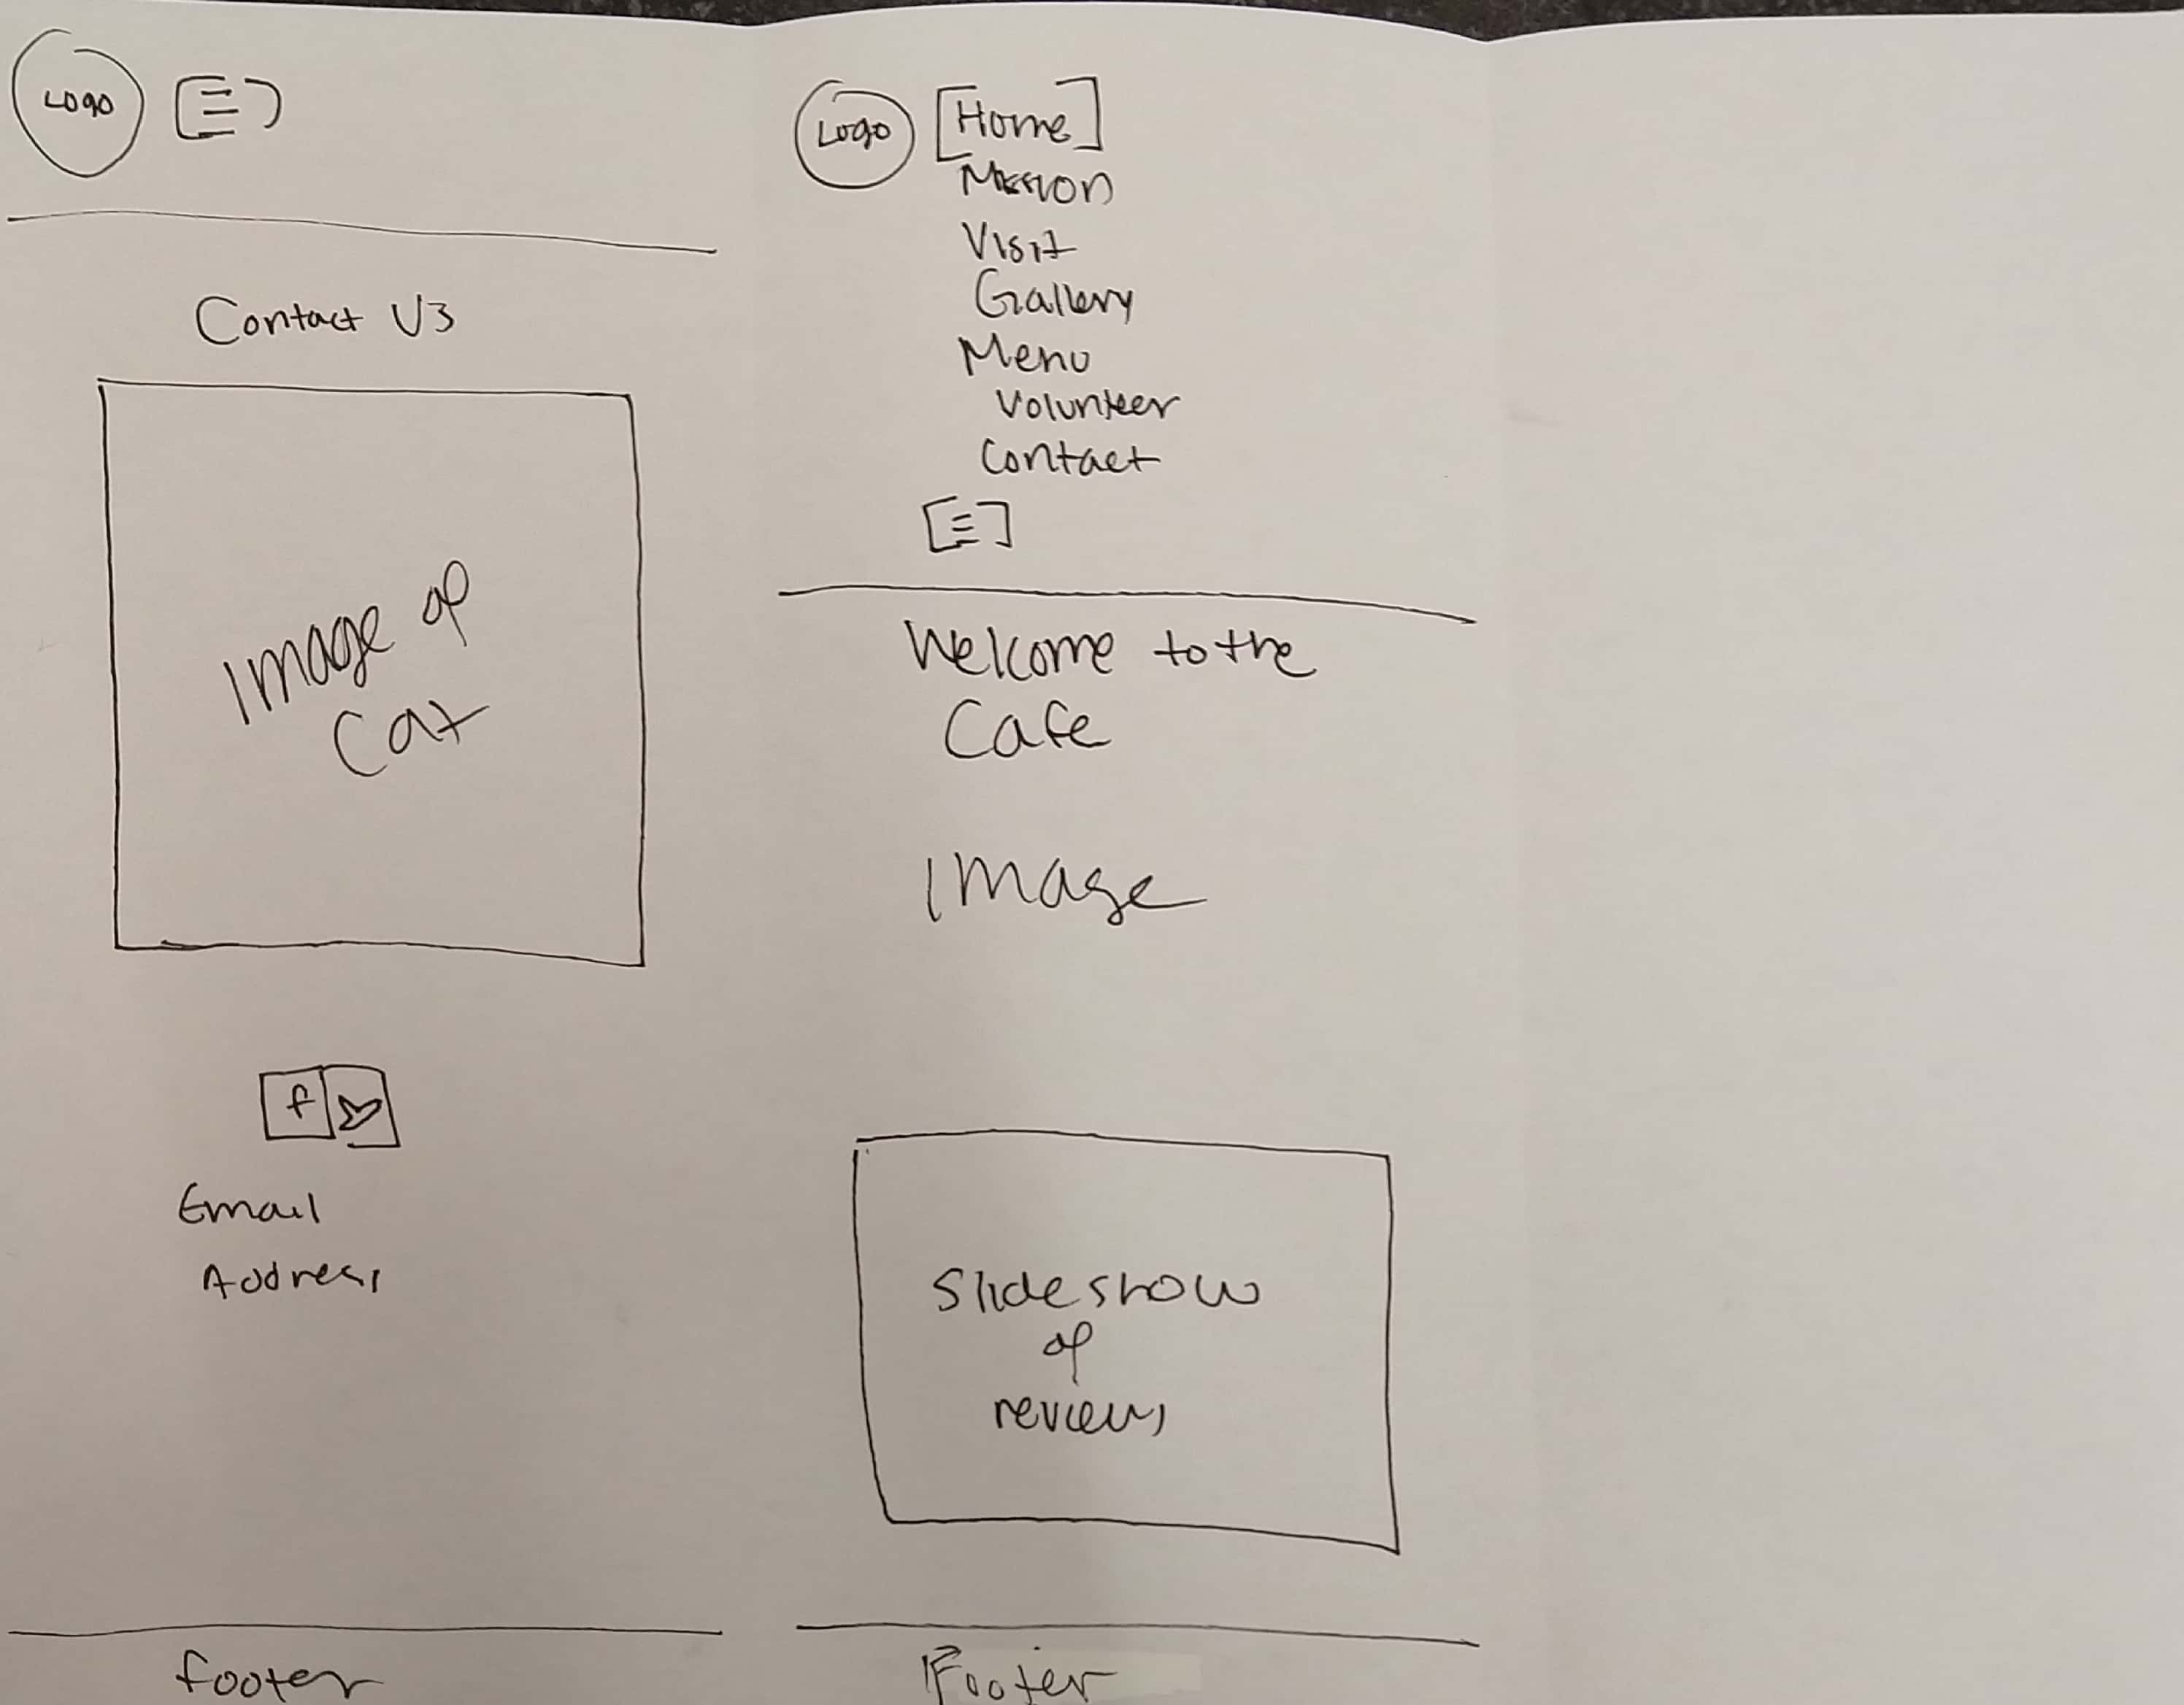 Logo
Contact Us
Image of
Cat
f
Email
Address
footer
Logo
[Home]
Mission
Visit
Gallery
Menu
Volunteer
Contact
Welcome to the
Cafe
Image
Slideshow
of
reviews
Footer